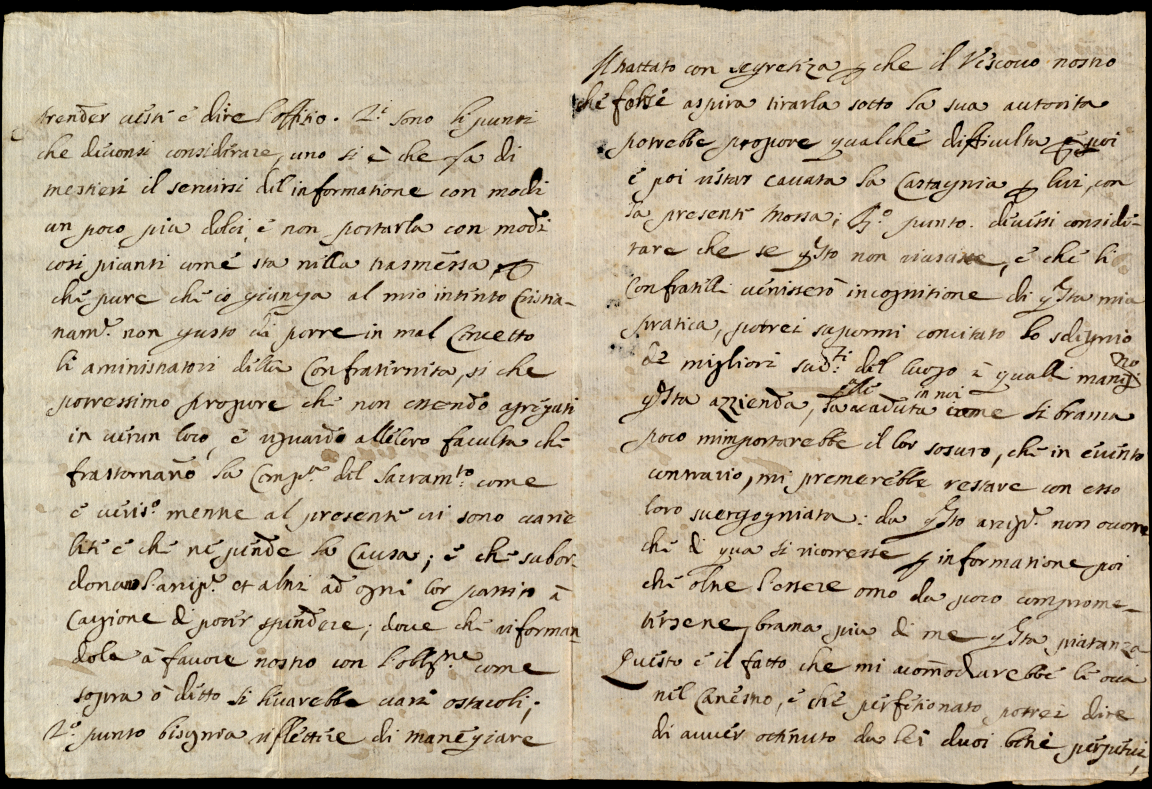 render vesti e dire l'offitio. 2.i sono li punti
che devonsi considerare, uno si è che fa di
mestieri il servirsi del informatione con modi
un poco piu dolci, e non portarla con modi
cosi picanti come sta nella trasmessa,
che pure che io giunga al mio intento Cristia-
nam.te non gusto di porre in mal Concetto
li aministratori della Confraternita, si che
potressimo propore che non essendo agregati
in verun loco, e riguardo alle loro faculta che
frastornano la Comp.a del Sacram.to come
è veris.o mentre al presente vi sono varie
lite e che ne pende la Causa; e che subor-
donano l'arcip.te et altri ad ogni lor partito à
Cagione di poter spendere; dove che riforman
dole à favore nostro con l'oblig.ne come
sopra ò detto si levarebbe varii ostacoli;
2.o punto bisognia riflettere di manegiare
Il trattato con segretezza p che il Vescovo nostro
che forse aspira tirarla sotto la sua autorita
potrebbe propore qualche difficulta
e poi restar cavata la Castagnia p lui, con
la presente mossa; 3.o punto. devessi conside-
rare che se q.sto non riuscisse, e che li
Confratelli venissero in cognitione di q.sta mia
pratica, potrei supormi concitato lo sdegnio
de migliori sud.ti del luogo à quali
q.sta azzienda, la caduta in noi come si brama
poco mimportarebbe il lor sosuro, che in evento
contrario, mi premerebbe restare con esso
loro svergogniata: da q.sto arcip.te non ocorre
che di qua si ricorresse p informatione poi
che oltre l'essere omo da poco comprome-
tersene, brama piu di me q.sta pietanza
Questo è il fatto che mi acomodarebbe le ova
nel Canestro, e che perfetionato potrei dire
di avver ottenuto da lei duoi beni perpetui,